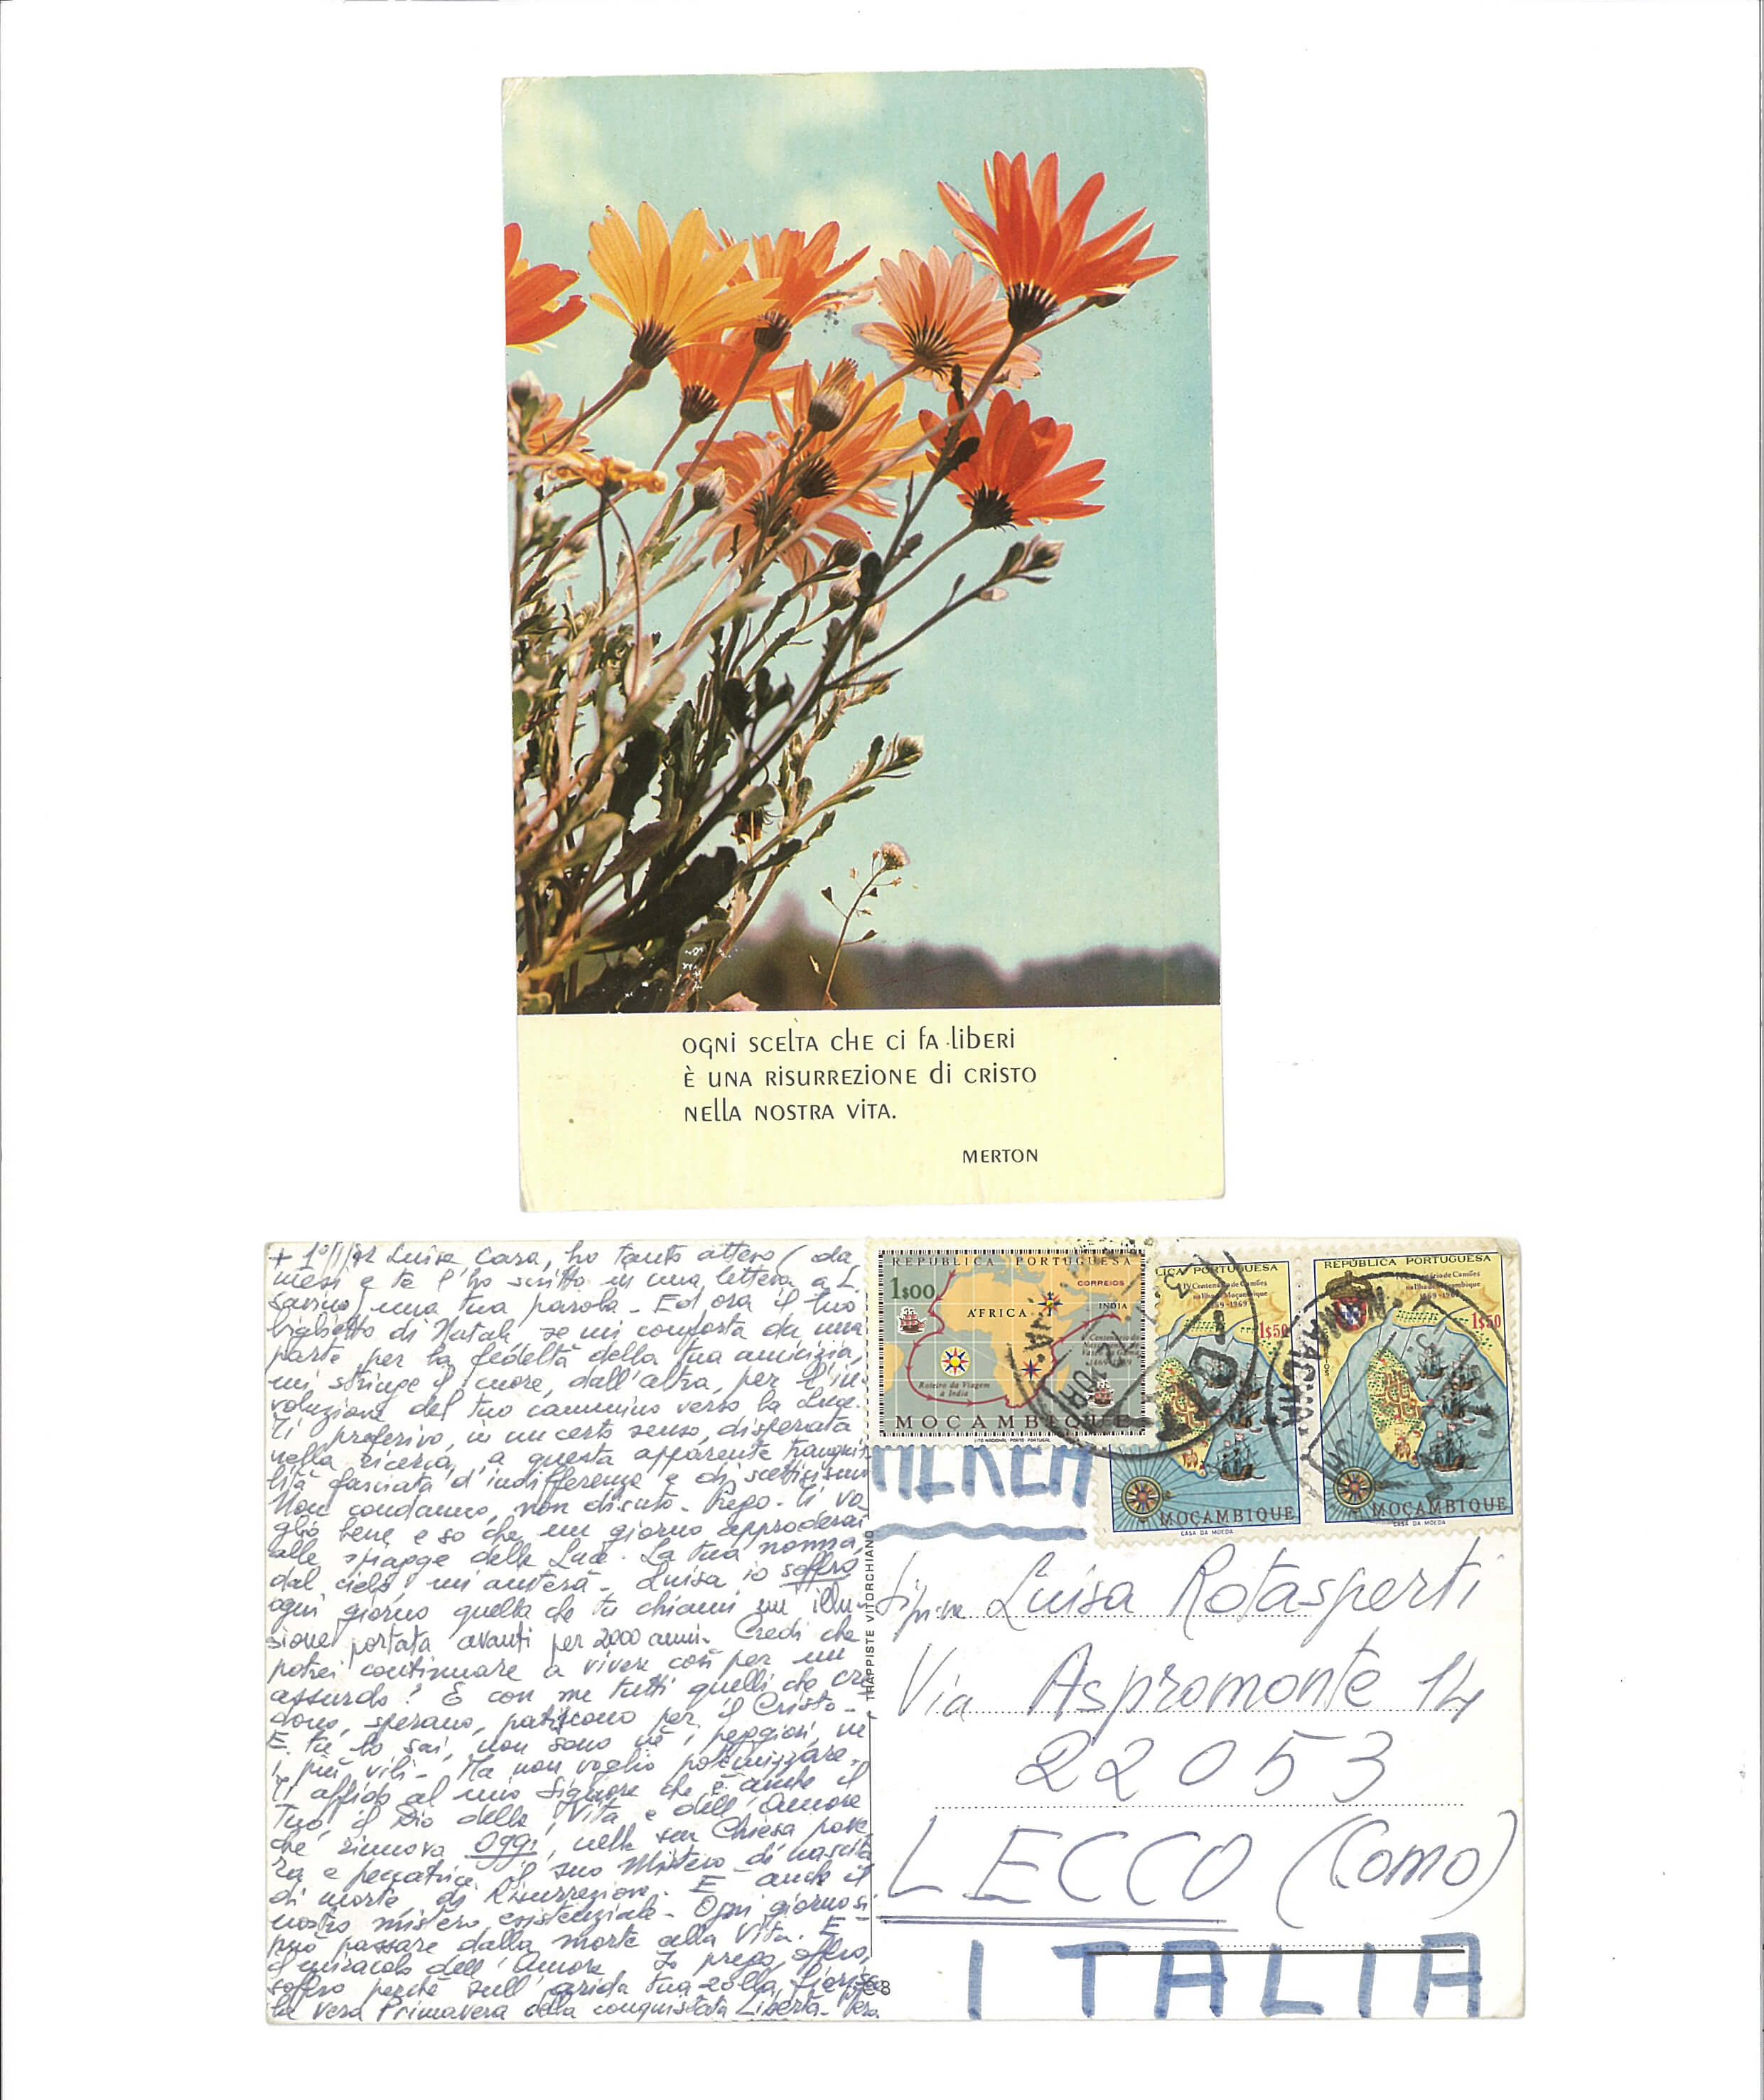 OGNI SCELTA CHE CI FA LIBERI
È UNA RISURREZIONE DI CRISTO
NELLA NOSTRA VITA.
MERTON
+ 1°/1/72 Luisa Cara, ho tanto atteso (da
mesi e te l'ho scritto in una lettera a L.
) una tua parola - Ed ora il tuo
biglietto di Natale, se mi conforta da una
parte per la fedeltà della tua amicizia
mi stringe il cuore, dall'altra, per l'in-
voluzione del tuo cammino verso la Luce.
Ti preferivo, in un certo senso, disperata
nella ricerca, a questa apparente tranquil-
lità fasciata d'indifferenza e di scetticismo
Non condanno, non discuto - Prego - Ti vo-
glio bene e so che un giorno approderai
alle spiagge della Luce. La tua nonna,
dal cielo, mi aiuterà - Luisa io soffro
ogni giorno quella che tu chiami un' illu-
sione portata avanti per 2000 anni. Credi che
potrei continuare a vivere così per un
assurdo? E con me tutti quelli che cre
dono, sperano, patiscono per il Cristo -
E tu lo sai, non sono nè i peggiori, nè
i più vili - Ma non voglio polemizzare -
Ti affido al mio Signore che è anche il
Tuo, il Dio della Vita e dell'Amore
che rinnova Oggi, nella sua Chiesa pove
ra e peccatrice il suo Mistero di nascita
di morte, di Risurrezione. E anche il
nostro mistero esistenziale - Ogni giorno si
può passare dalla morte alla Vita. E
il miracolo dell'Amore. Io prego, offro,
soffro perchè sull'arida tua zolla, fiorisca
la vera Primavera della conquistata Libertà - Vera
C8
TRAPPISTE VITORCHIANO
REPÚBLICA PORTUGUESA
1$00
CORREIOS
ÁFRICA
INDIA
Centenário do
Nascimento de
Vasco da Gama
1469-1969
Roteiro da Viagem
à India
MOÇAMBIQUE
LITO NACIONAL PORTO PORTUGAL
ICA PORTUGUESA
IV Centenário de Camões
na Ilha de Moçambique
1569-1969
1$50
MOÇAMBIQUE
CASA DA MOEDA
REPÚBLICA PORTUGUESA
IV Centenário de Camões
na Ilha de Moçambique
1569-1969
1$50
MOÇAMBIQUE
CASA DA MOEDA
AEREA
Luisa Rotasperti
Via Aspromonte 14
22053
LECCO (Como)
ITALIA